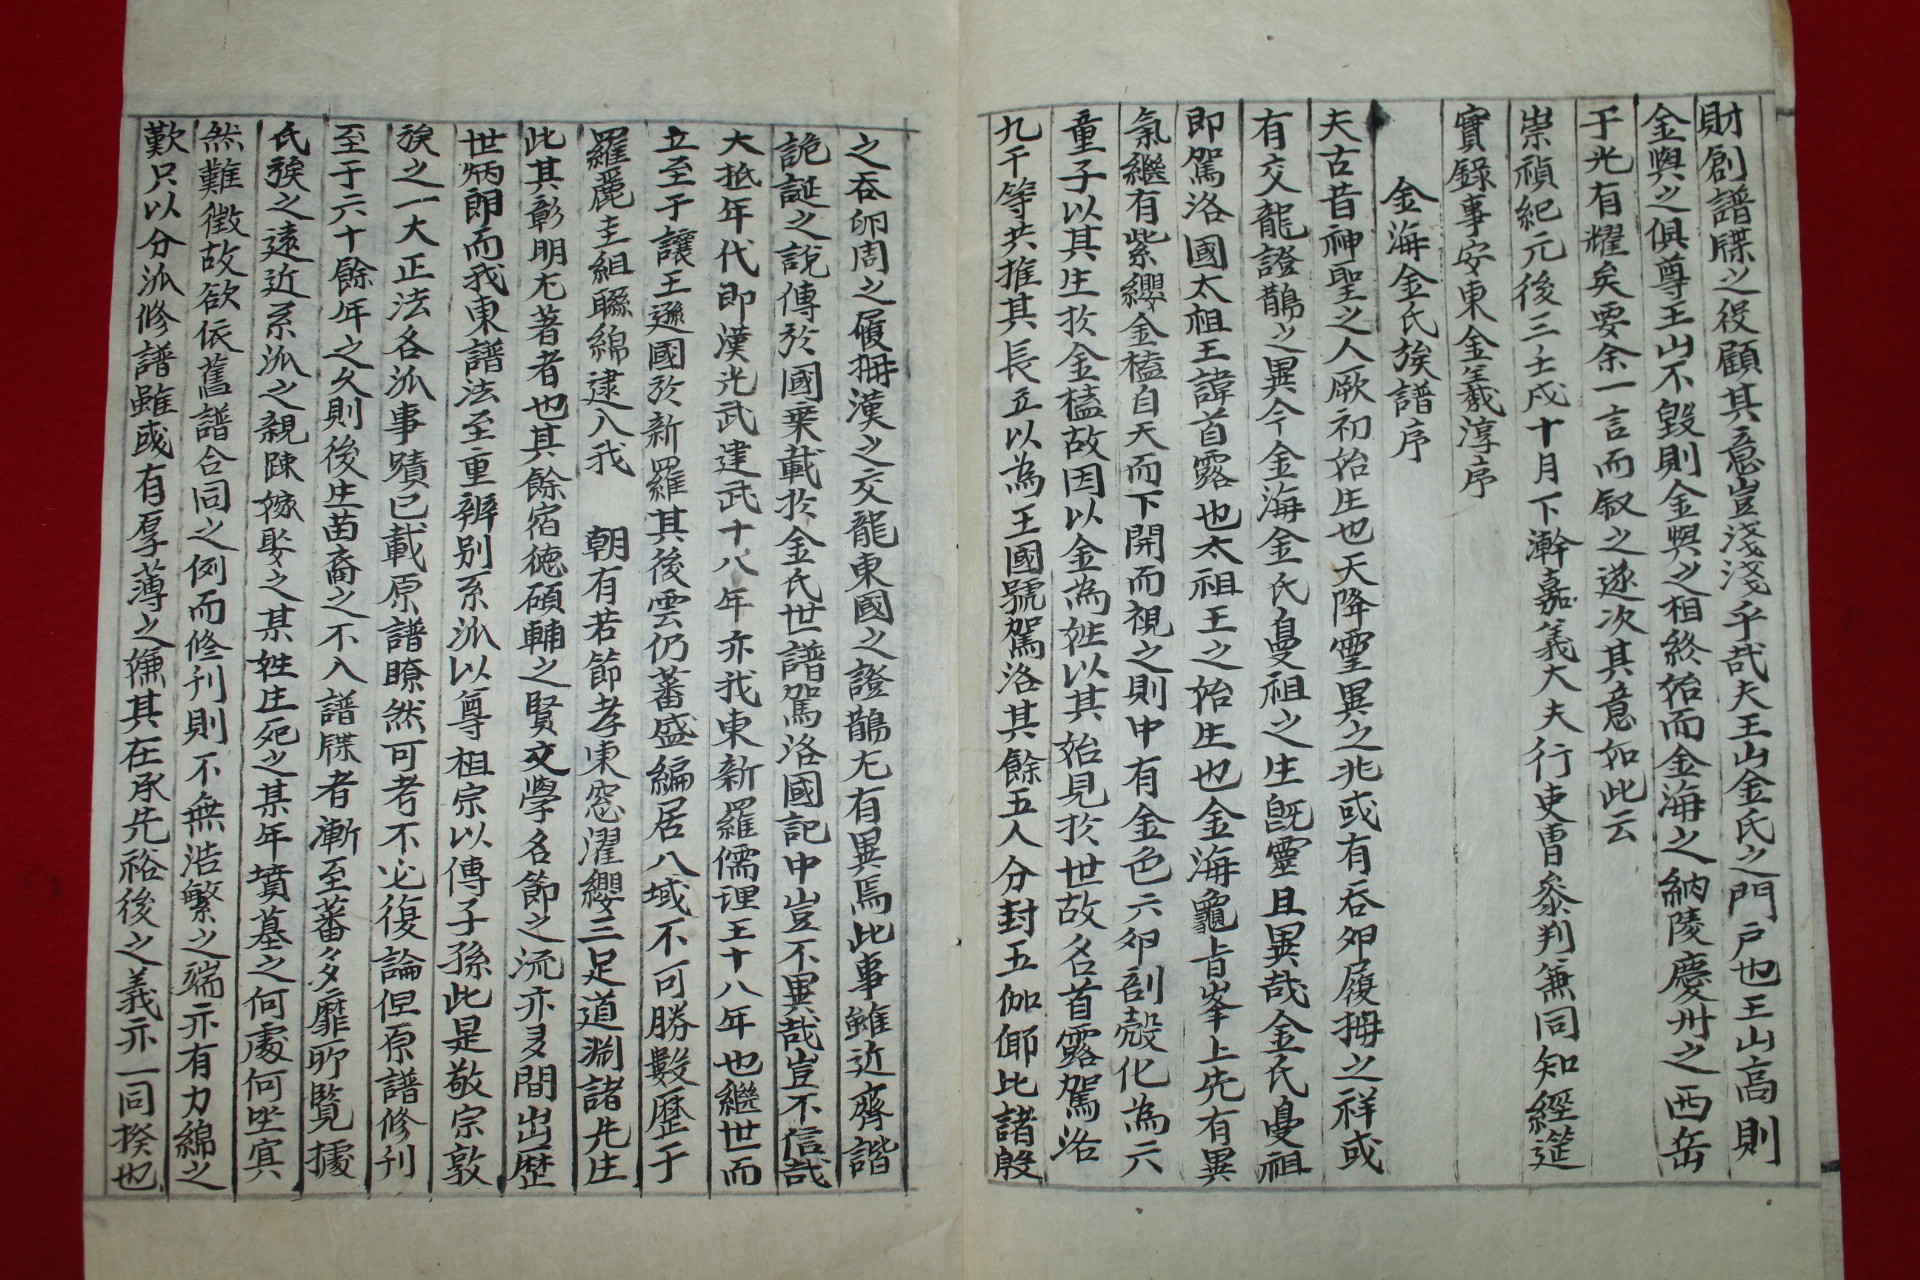 財創譜牒之役顧其意豈淺淺乎哉夫王山金氏之門戶也王山高則
金與之俱尊王山不毀則金與之相終始而金海之納陵慶州之西岳
于光有耀矣要余一言而叙之遂次其意如此云
崇禎紀元後三壬戌十月下澣嘉義大夫行吏曹叅判兼同知經筵
實錄事安東金羲淳序
金海金氏族譜序
夫古昔神聖之人厥初始生也天降靈異之兆或有吞卵履拇之祥或
有交龍證鵲之異今金海金氏鼻祖之生旣靈且異哉金氏鼻祖
即駕洛國太祖王諱首露也太祖王之始生也金海龜旨峯上先有異
氣繼有紫纓金榼自天而下開而視之則中有金色六卵剖殼化為六
童子以其生於金榼故因以金為姓以其始見於世故名首露駕洛
九干等共推其長立以為王國號駕洛其餘五人分封五伽倻比諸殷
之吞卵周之履拇漢之交龍東國之證鵲尤有異焉此事雖近齊諧
詭誕之說傳於國乘載於金氏世譜駕洛國記中豈不異哉豈不信哉
大抵年代即漢光武建武十八年亦我東新羅儒理王十八年也繼世而
立至于讓王遜國於新羅其後雲仍蕃盛編居八域不可勝數歷于
羅麗圭組聯綿逮入我 朝有若節孝東窓濯纓三足道淵諸先生
此其彰明尤著者也其餘宿德碩輔之賢文學名節之流亦多間出歷
世炳郎而我東譜法至重辨別系派以尊祖宗以傳子孫此是敬宗敦
族之一大正法各派事蹟已載原譜瞭然可考不必復論但原譜修刊
至于六十餘年之久則後生苗裔之不入譜牒者漸至蕃多靡所覽據
氏族之遠近系派之親踈嫁娶之某姓生死之某年墳墓之何處何坐寘
然難徵故欲依舊譜合同之例而修刊則不無浩繁之端亦有力綿之
歎只以分派修譜雖或有厚薄之嫌其在承先裕後之義亦一同揆也